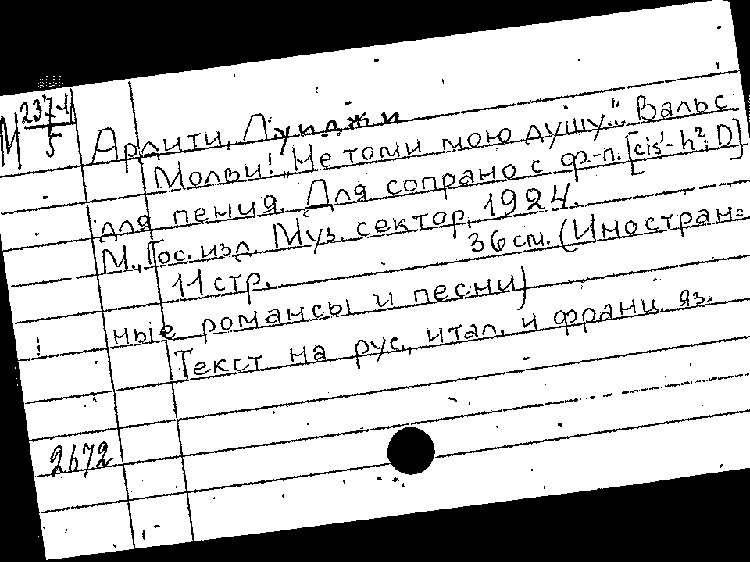 М 237-4/5
Ардити, Луиджи
Мольи! „Не томи мою душу.." Вальс
для пения. Для сопрано с ф-п. [cis'-h²; D]
М., Гос. изд. Муз. сектор, 1924.
11 стр. 36 см. (Иностран=
ные романсы и песни)
Текст на рус., итал. и франц. яз.
2672